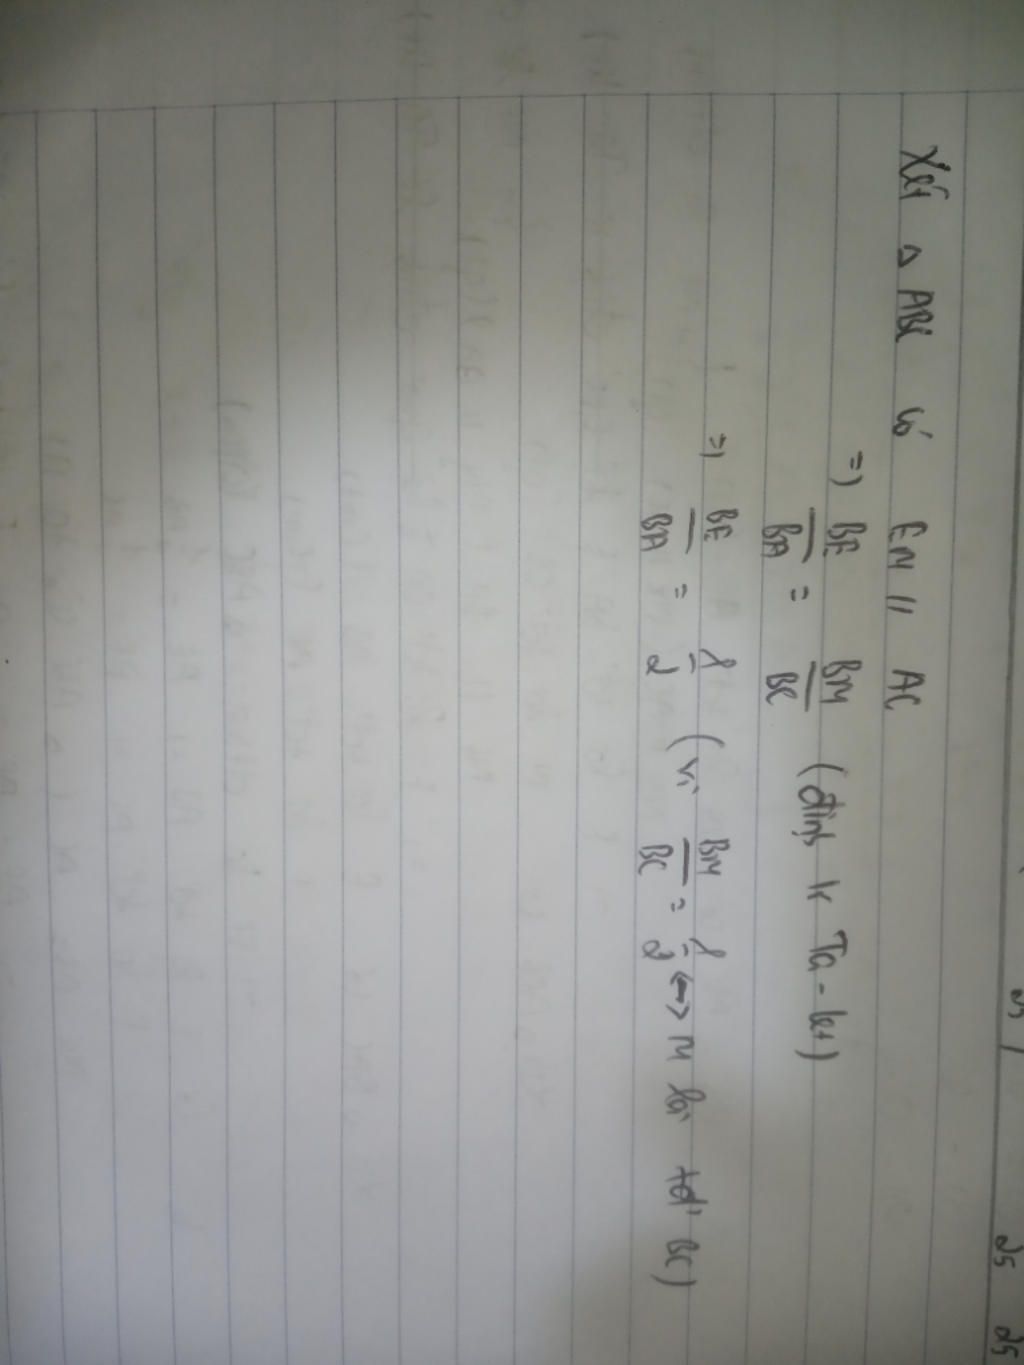 Xét △ ABC có EM // AC
=) BE/BA = BM/BC (định lí Ta-let)
=) BE/BA = 1/2 (vì BM/BC = 1/2 <-> M là tđ' BC)
25
25 25